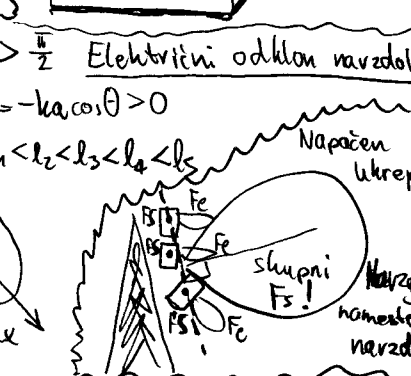 > π/2 Električni odklon navzdol
= -ka cos θ > 0
< l₂ < l₃ < l₄ < l₅
Napačen
ukrep
Fs Fe
Fs Fe
skupni
Fs!
Fs Fe
namest
navzd